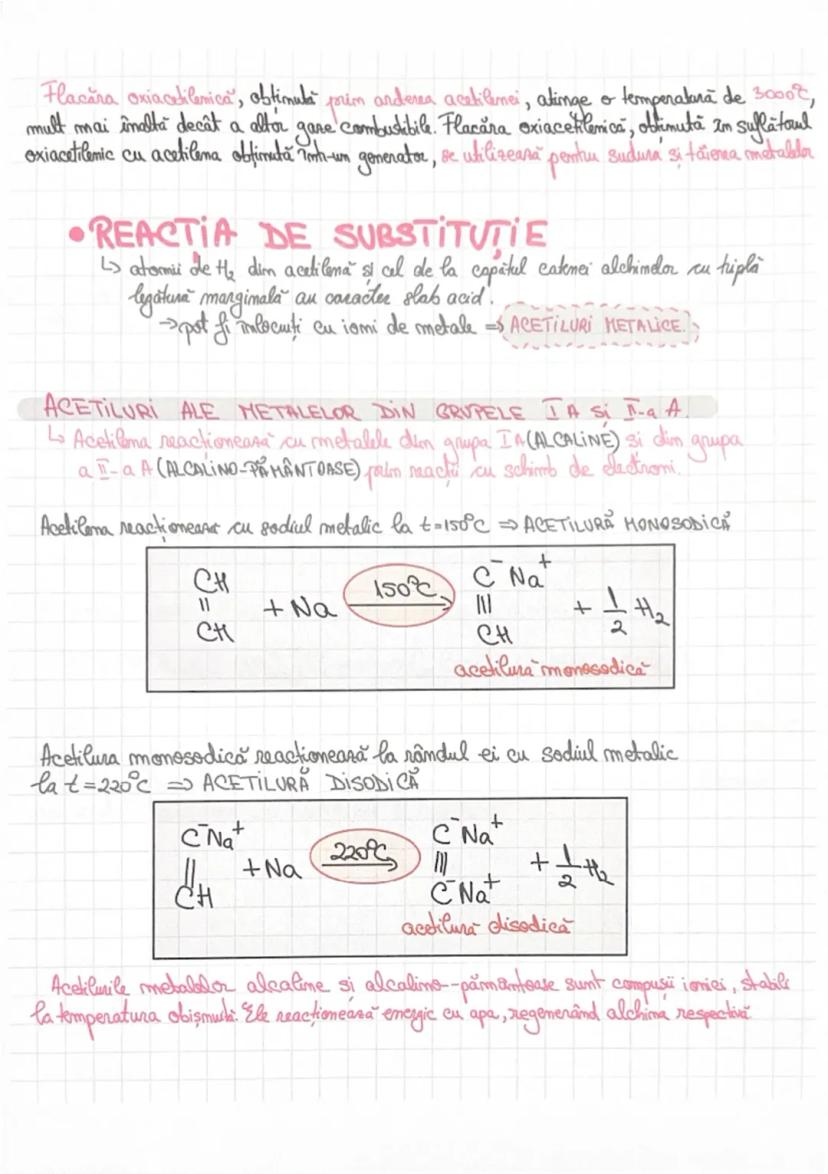 Flacăra oxiacetilenică, obținută prin arderea acetilenei, atinge o temperatură de 3000°C,
mult mai înaltă decât a altor gaze combustibile. Flacăra oxiacetilenică, obținută în suflătorul
oxiacetilenic cu acetilena obținută într-un generator, se utilizează pentru sudura și tăierea metalelor
• REACTIA DE SUBSTITUȚIE
↳ atomii de H₂ din acetilenă și cel de la capătul catenei alchinelor cu triplă
legătură marginală au caracter slab acid.
→ pot fi înlocuți cu ioni de metale ⇒ ACETILURI METALICE.
ACETILURI ALE METALELOR DIN GRUPELE I A SI II-a A.
↳ Acetilena reacționează cu metalele din grupa I A (ALCALINE) si din grupa
a II-a A (ALCALINO-PĂMÂNTOASE) prin reacții cu schimb de electroni.
Acetilena reacționează cu sodiul metalic la t=150°C ⇒ ACETILURĂ MONOSODICĂ
CH C⁻Na⁺
|| + Na 150°C → ||| + 1/2 H₂
CH CH
acetilură monosodică
Acetilura monosodică reacționează la rândul ei cu sodiul metalic
la t=220°C ⇒ ACETILURĂ DISODICĂ
C⁻Na⁺ C⁻Na⁺
|| + Na 220°C → ||| + 1/2 H₂
CH C⁻Na⁺
acetilură disodică
Acetilurile metalelor alcaline si alcalino--pământoase sunt compușii ionici, stabili
la temperatura obișnuită. Ele reacționează energic cu apa, regenerând alchina respectivă